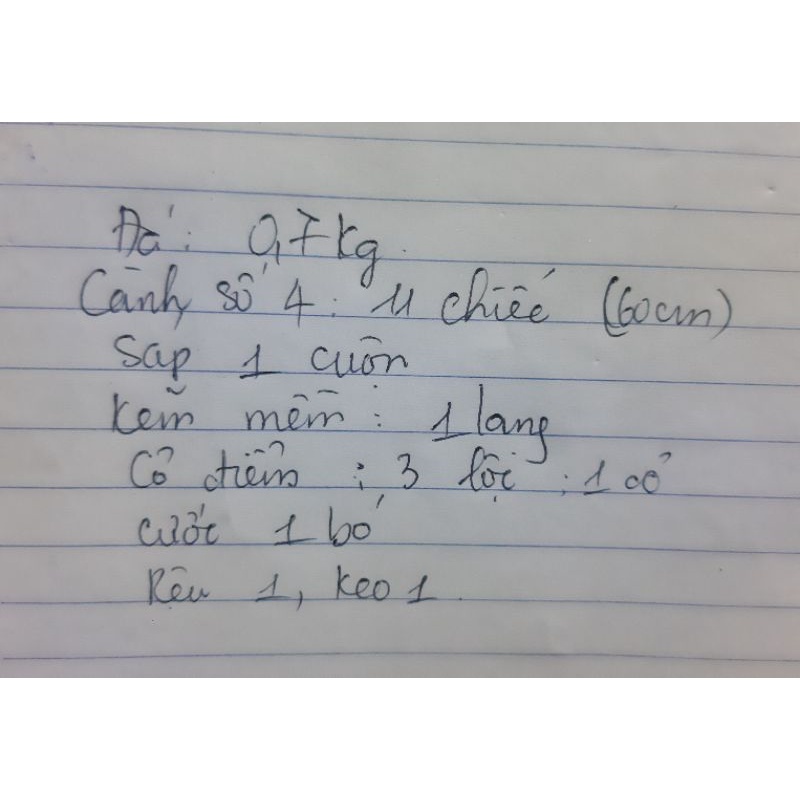 Đá: 0,7kg.
Cành số 4: 11 chiếc (60cm)
Sap 1 cuộn
Kẽm mềm: 1 lang
Cỏ điểm: 3 lộc: 1 cỏ
cước 1 bó
Rêu 1, keo 1.